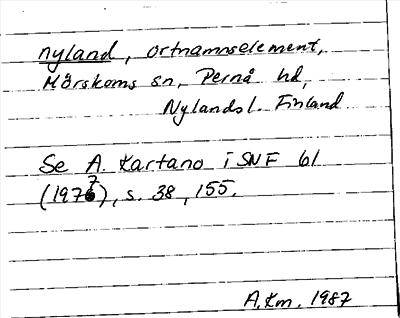 nyland, ortnamnselement,
Mörskoms sn, Pernå hd,
Nylands l. Finland
Se A. Kartano i SNF 61
(1977), s. 38, 155.
A.Km. 1987